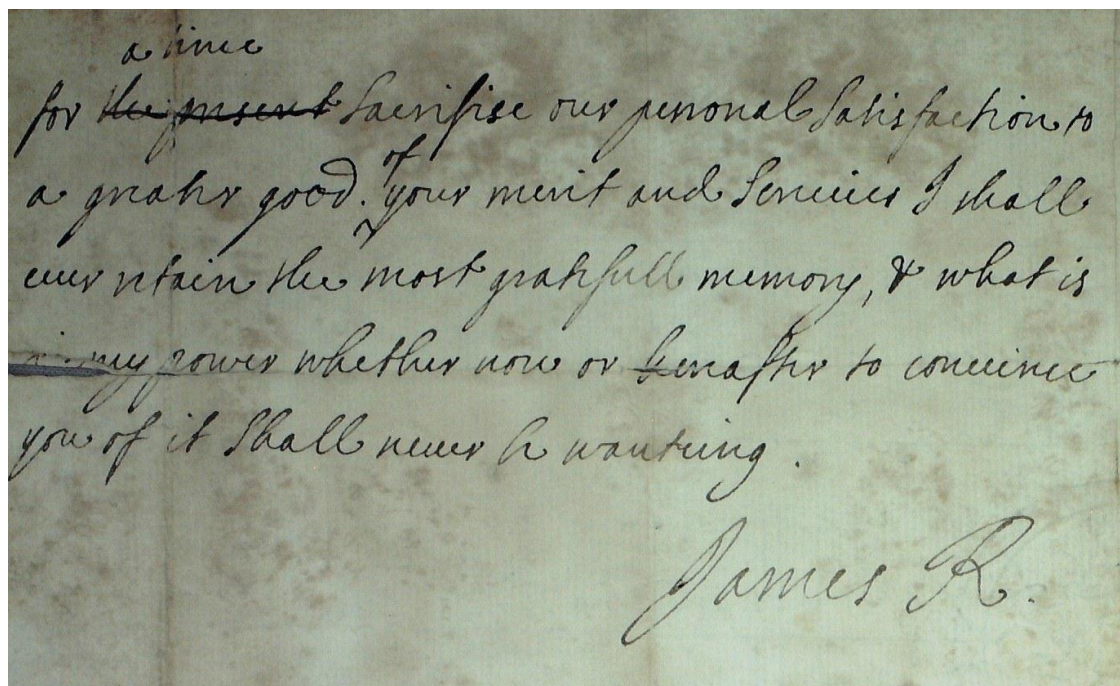 a time
for the present Sacrifise our personal Satisfaction to
of
a greater good. your merit and Services I shall
ever retain the most gratefull memory, & what is
in my power whether now or hereafter to convince
you of it Shall never be wanting.
James R.